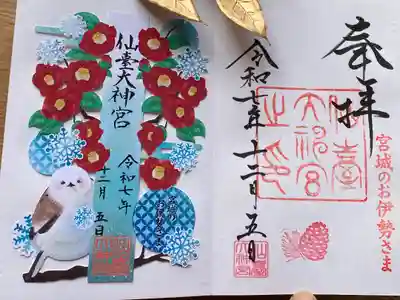 奉拝
宮城のお伊勢さま
仙臺
大神宮
之印
令和七年十二月五日
仙臺大神宮
令和七年
十二月 五日
宮城の
お伊勢さま